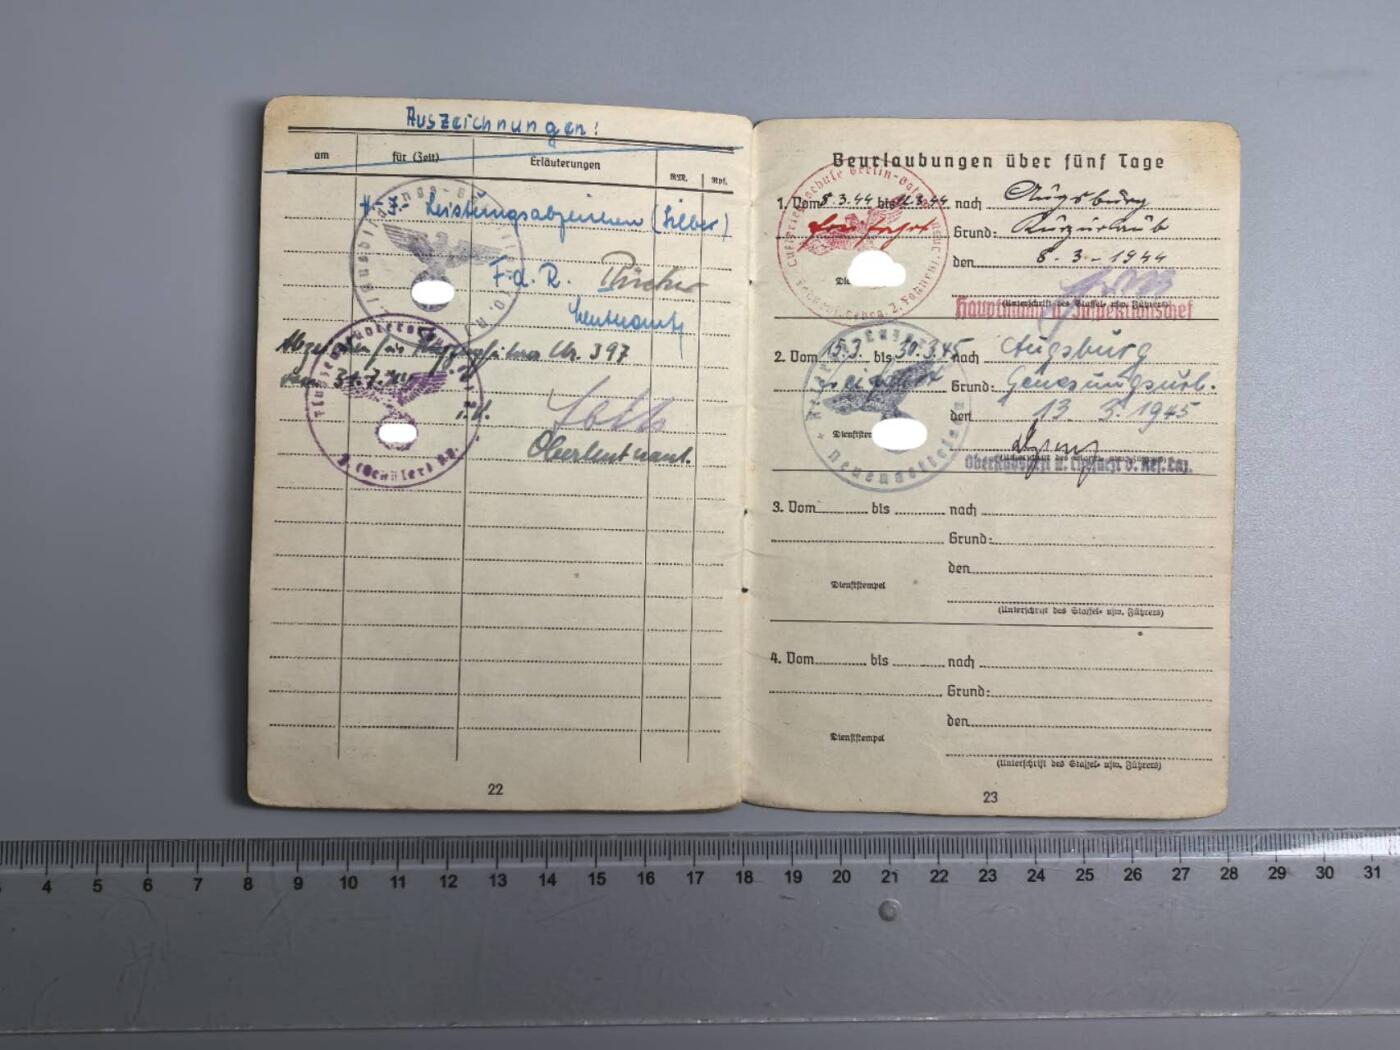 Auszeichnungen:
am für (Zeit) Erläuterungen RM. Rpf.
H-J- Leistungsabzeichen (Silber)
F.d.R.
Leutnant
Abzeichen für Flugzeugführer Nr. 397
vom 31.7.44
i.V.
Oberleutnant.
22
Beurlaubungen über fünf Tage
1. Vom 8.3.44 bis nach Augsburg
Grund: Kurzurlaub
den 8.3.-1944
(Unterschrift des Staffel- usw. Führers)
Hauptmann u. Inspektionschef
2. Vom 15.3. bis 30.3.45 nach Augsburg
Grund: Genesungsurl.
den 13. 3. 1945
Dienststempel
3. Vom bis nach
Grund:
den
Dienststempel
(Unterschrift des Staffel- usw. Führers)
4. Vom bis nach
Grund:
den
Dienststempel
(Unterschrift des Staffel- usw. Führers)
23
4 5 6 7 8 9 10 11 12 13 14 15 16 17 18 19 20 21 22 23 24 25 26 27 28 29 30 31